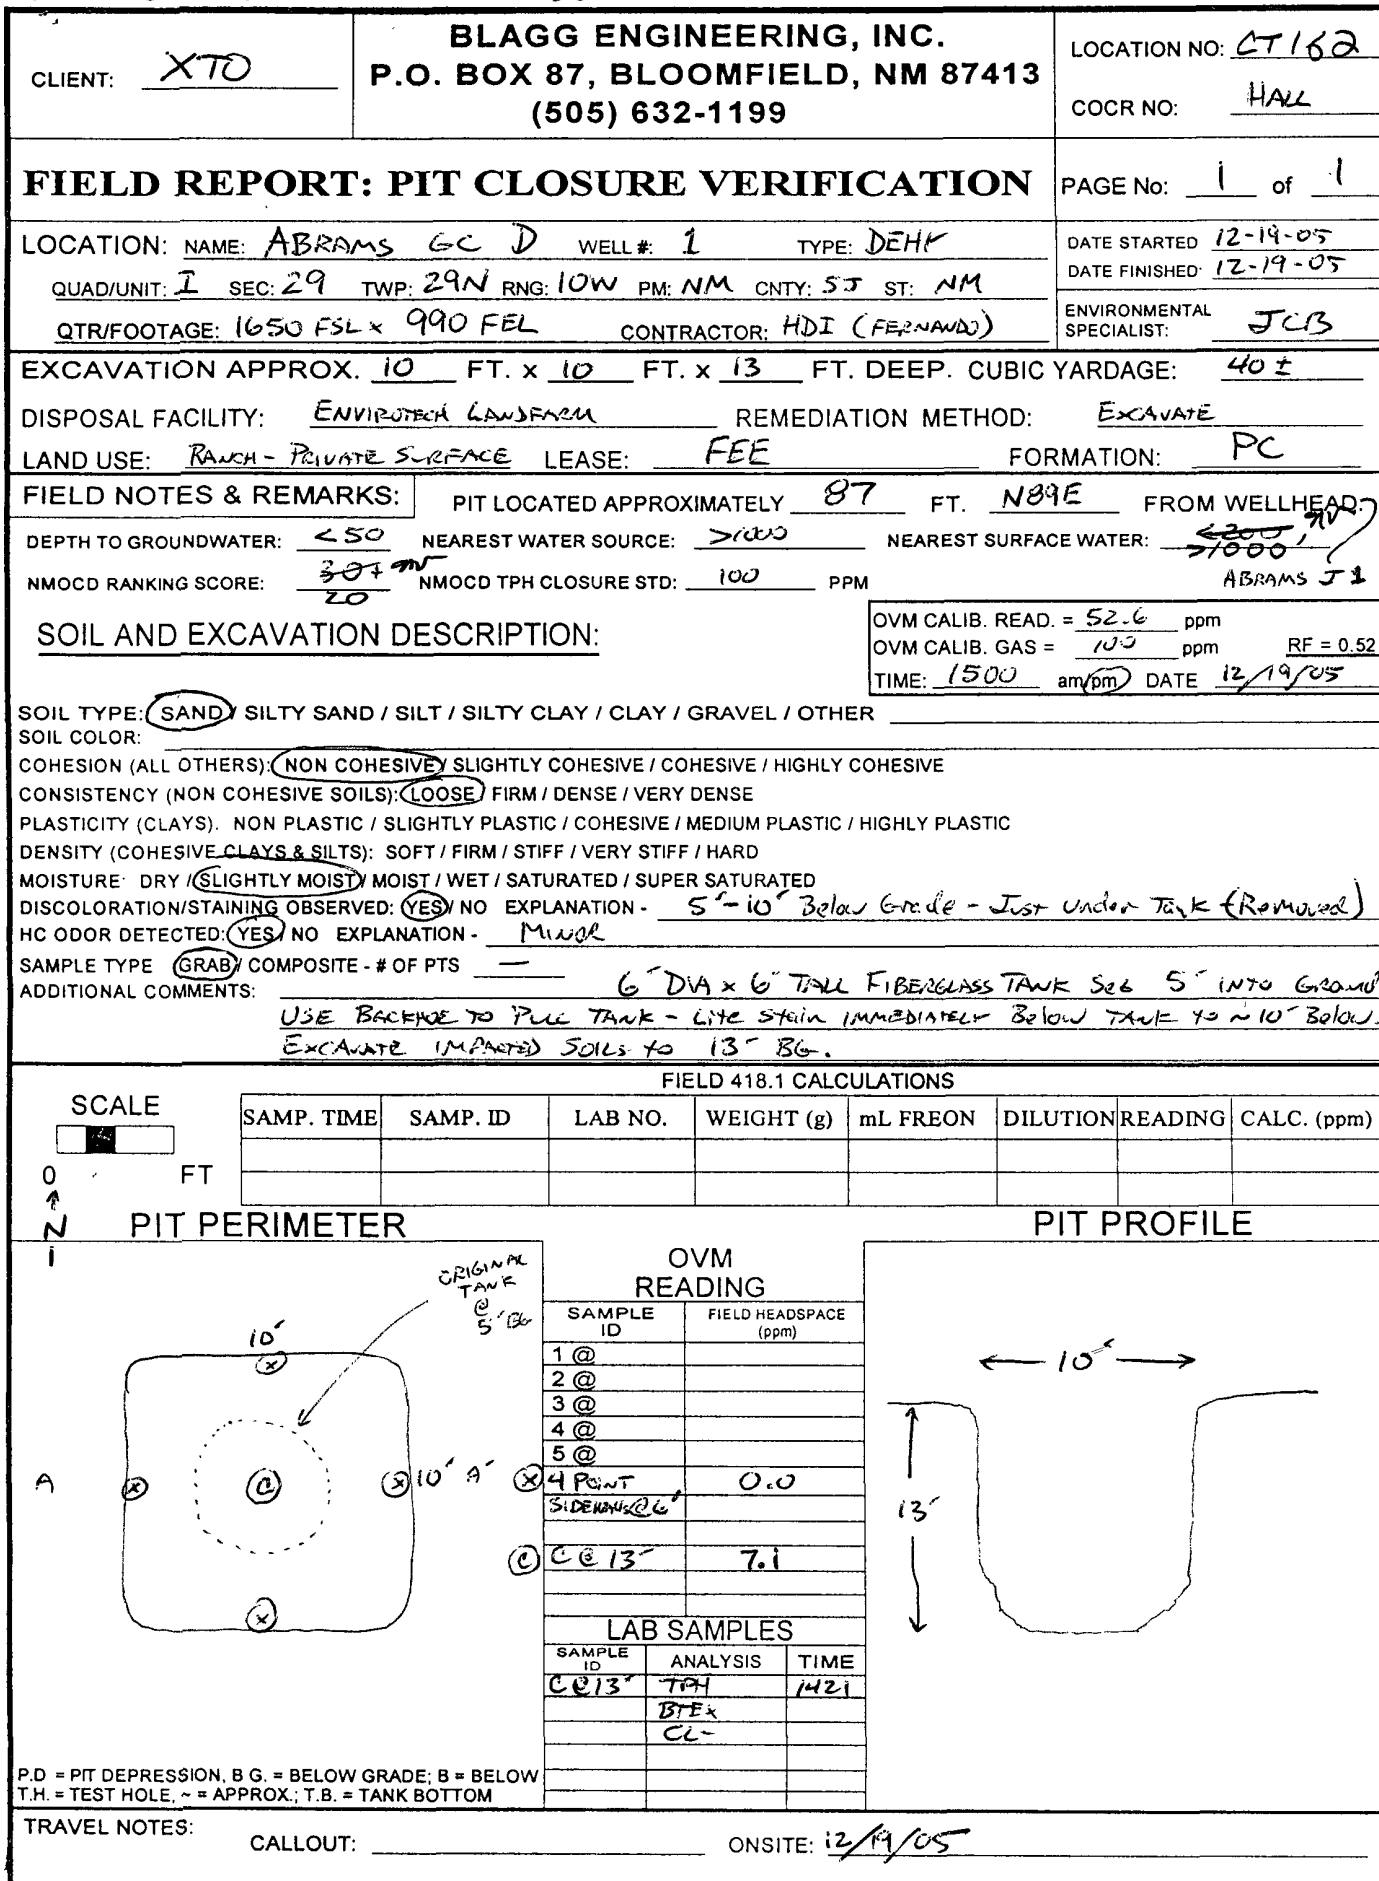 BLAGG ENGINEERING, INC.
P.O. BOX 87, BLOOMFIELD, NM 87413
(505) 632-1199
CLIENT: XTO
LOCATION NO: CT162
COCR NO: HALL
FIELD REPORT: PIT CLOSURE VERIFICATION
PAGE No: 1 of 1
LOCATION: NAME: ABRAMS GC D WELL #: 1 TYPE: DEHY
QUAD/UNIT: I SEC: 29 TWP: 29N RNG: 10W PM: NM CNTY: SJ ST: NM
QTR/FOOTAGE: 1650 FSL x 990 FEL CONTRACTOR: HDI (FERNANDO)
DATE STARTED 12-19-05
DATE FINISHED 12-19-05
ENVIRONMENTAL
SPECIALIST: JCB
EXCAVATION APPROX. 10 FT. x 10 FT. x 13 FT. DEEP. CUBIC YARDAGE: 40 ±
DISPOSAL FACILITY: ENVIROTECH LANDFARM REMEDIATION METHOD: EXCAVATE
LAND USE: RANCH - PRIVATE SURFACE LEASE: FEE FORMATION: PC
FIELD NOTES & REMARKS: PIT LOCATED APPROXIMATELY 87 FT. N89E FROM WELLHEAD.
DEPTH TO GROUNDWATER: <50 NEAREST WATER SOURCE: >1000 NEAREST SURFACE WATER: <200 >1000'
NMOCD RANKING SCORE: 30+ 20 NMOCD TPH CLOSURE STD: 100 PPM
ABRAMS J 1
SOIL AND EXCAVATION DESCRIPTION:
OVM CALIB. READ. = 52.6 ppm
OVM CALIB. GAS = 100 ppm RF = 0.52
TIME: 1500 am/pm DATE 12/19/05
SOIL TYPE: SAND / SILTY SAND / SILT / SILTY CLAY / CLAY / GRAVEL / OTHER
SOIL COLOR:
COHESION (ALL OTHERS): NON COHESIVE / SLIGHTLY COHESIVE / COHESIVE / HIGHLY COHESIVE
CONSISTENCY (NON COHESIVE SOILS): LOOSE / FIRM / DENSE / VERY DENSE
PLASTICITY (CLAYS). NON PLASTIC / SLIGHTLY PLASTIC / COHESIVE / MEDIUM PLASTIC / HIGHLY PLASTIC
DENSITY (COHESIVE CLAYS & SILTS): SOFT / FIRM / STIFF / VERY STIFF / HARD
MOISTURE: DRY / SLIGHTLY MOIST / MOIST / WET / SATURATED / SUPER SATURATED
DISCOLORATION/STAINING OBSERVED: YES / NO EXPLANATION - 5'-10' Below Grade - Just Under Tank (Removed)
HC ODOR DETECTED: YES / NO EXPLANATION - MINOR
SAMPLE TYPE GRAB / COMPOSITE - # OF PTS —
ADDITIONAL COMMENTS: 6' DIA x 6' TALL FIBERGLASS TANK Set 5' INTO GROUND
USE BACKHOE TO PULL TANK - Lite Stain IMMEDIATELY Below TANK to ~10' Below.
EXCAVATE IMPACTED SOILS to 13' BG.
FIELD 418.1 CALCULATIONS
SCALE
0 FT
SAMP. TIME SAMP. ID LAB NO. WEIGHT (g) mL FREON DILUTION READING CALC. (ppm)
N
PIT PERIMETER
ORIGINAL
TANK
@
5' BG
10'
A
X
X
C
X 10' A'
X
OVM
READING
SAMPLE
ID
FIELD HEADSPACE
(ppm)
1 @
2 @
3 @
4 @
5 @
X 4 POINT 0.0
SIDEWALLS @ 6'
C C @ 13' 7.1
LAB SAMPLES
SAMPLE
ID
ANALYSIS TIME
C@13' TPH 1421
BTEX
CL-
PIT PROFILE
10'
13'
P.D = PIT DEPRESSION, B G. = BELOW GRADE; B = BELOW
T.H. = TEST HOLE, ~ = APPROX.; T.B. = TANK BOTTOM
TRAVEL NOTES:
CALLOUT: ONSITE: 12/19/05